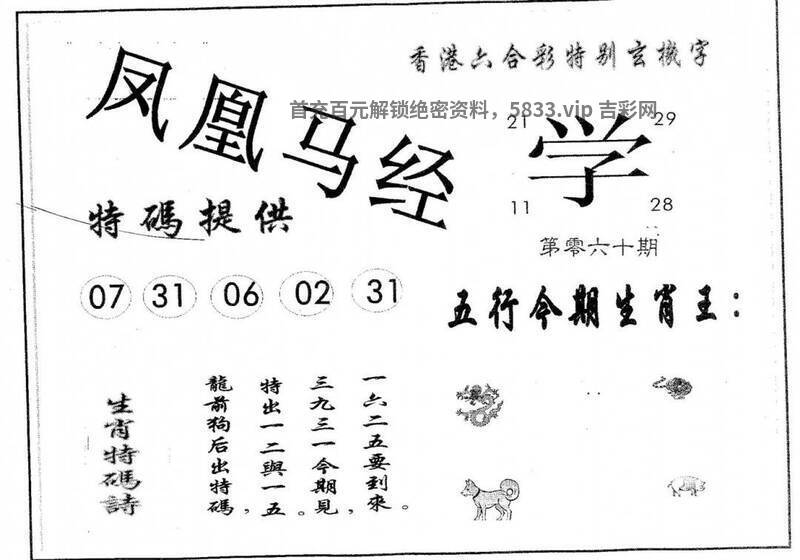 香港六合彩特别玄機字
凤凰马经
首充百元解锁绝密资料，5833.vip 吉彩网
21
29
学
11
28
特碼提供
第零六十期
07 31 06 02 31
五行今期生肖王：
一六二五要到來。
三九三一今期見，
特出一二與一五。
龍前狗后出特碼，
生肖特碼詩